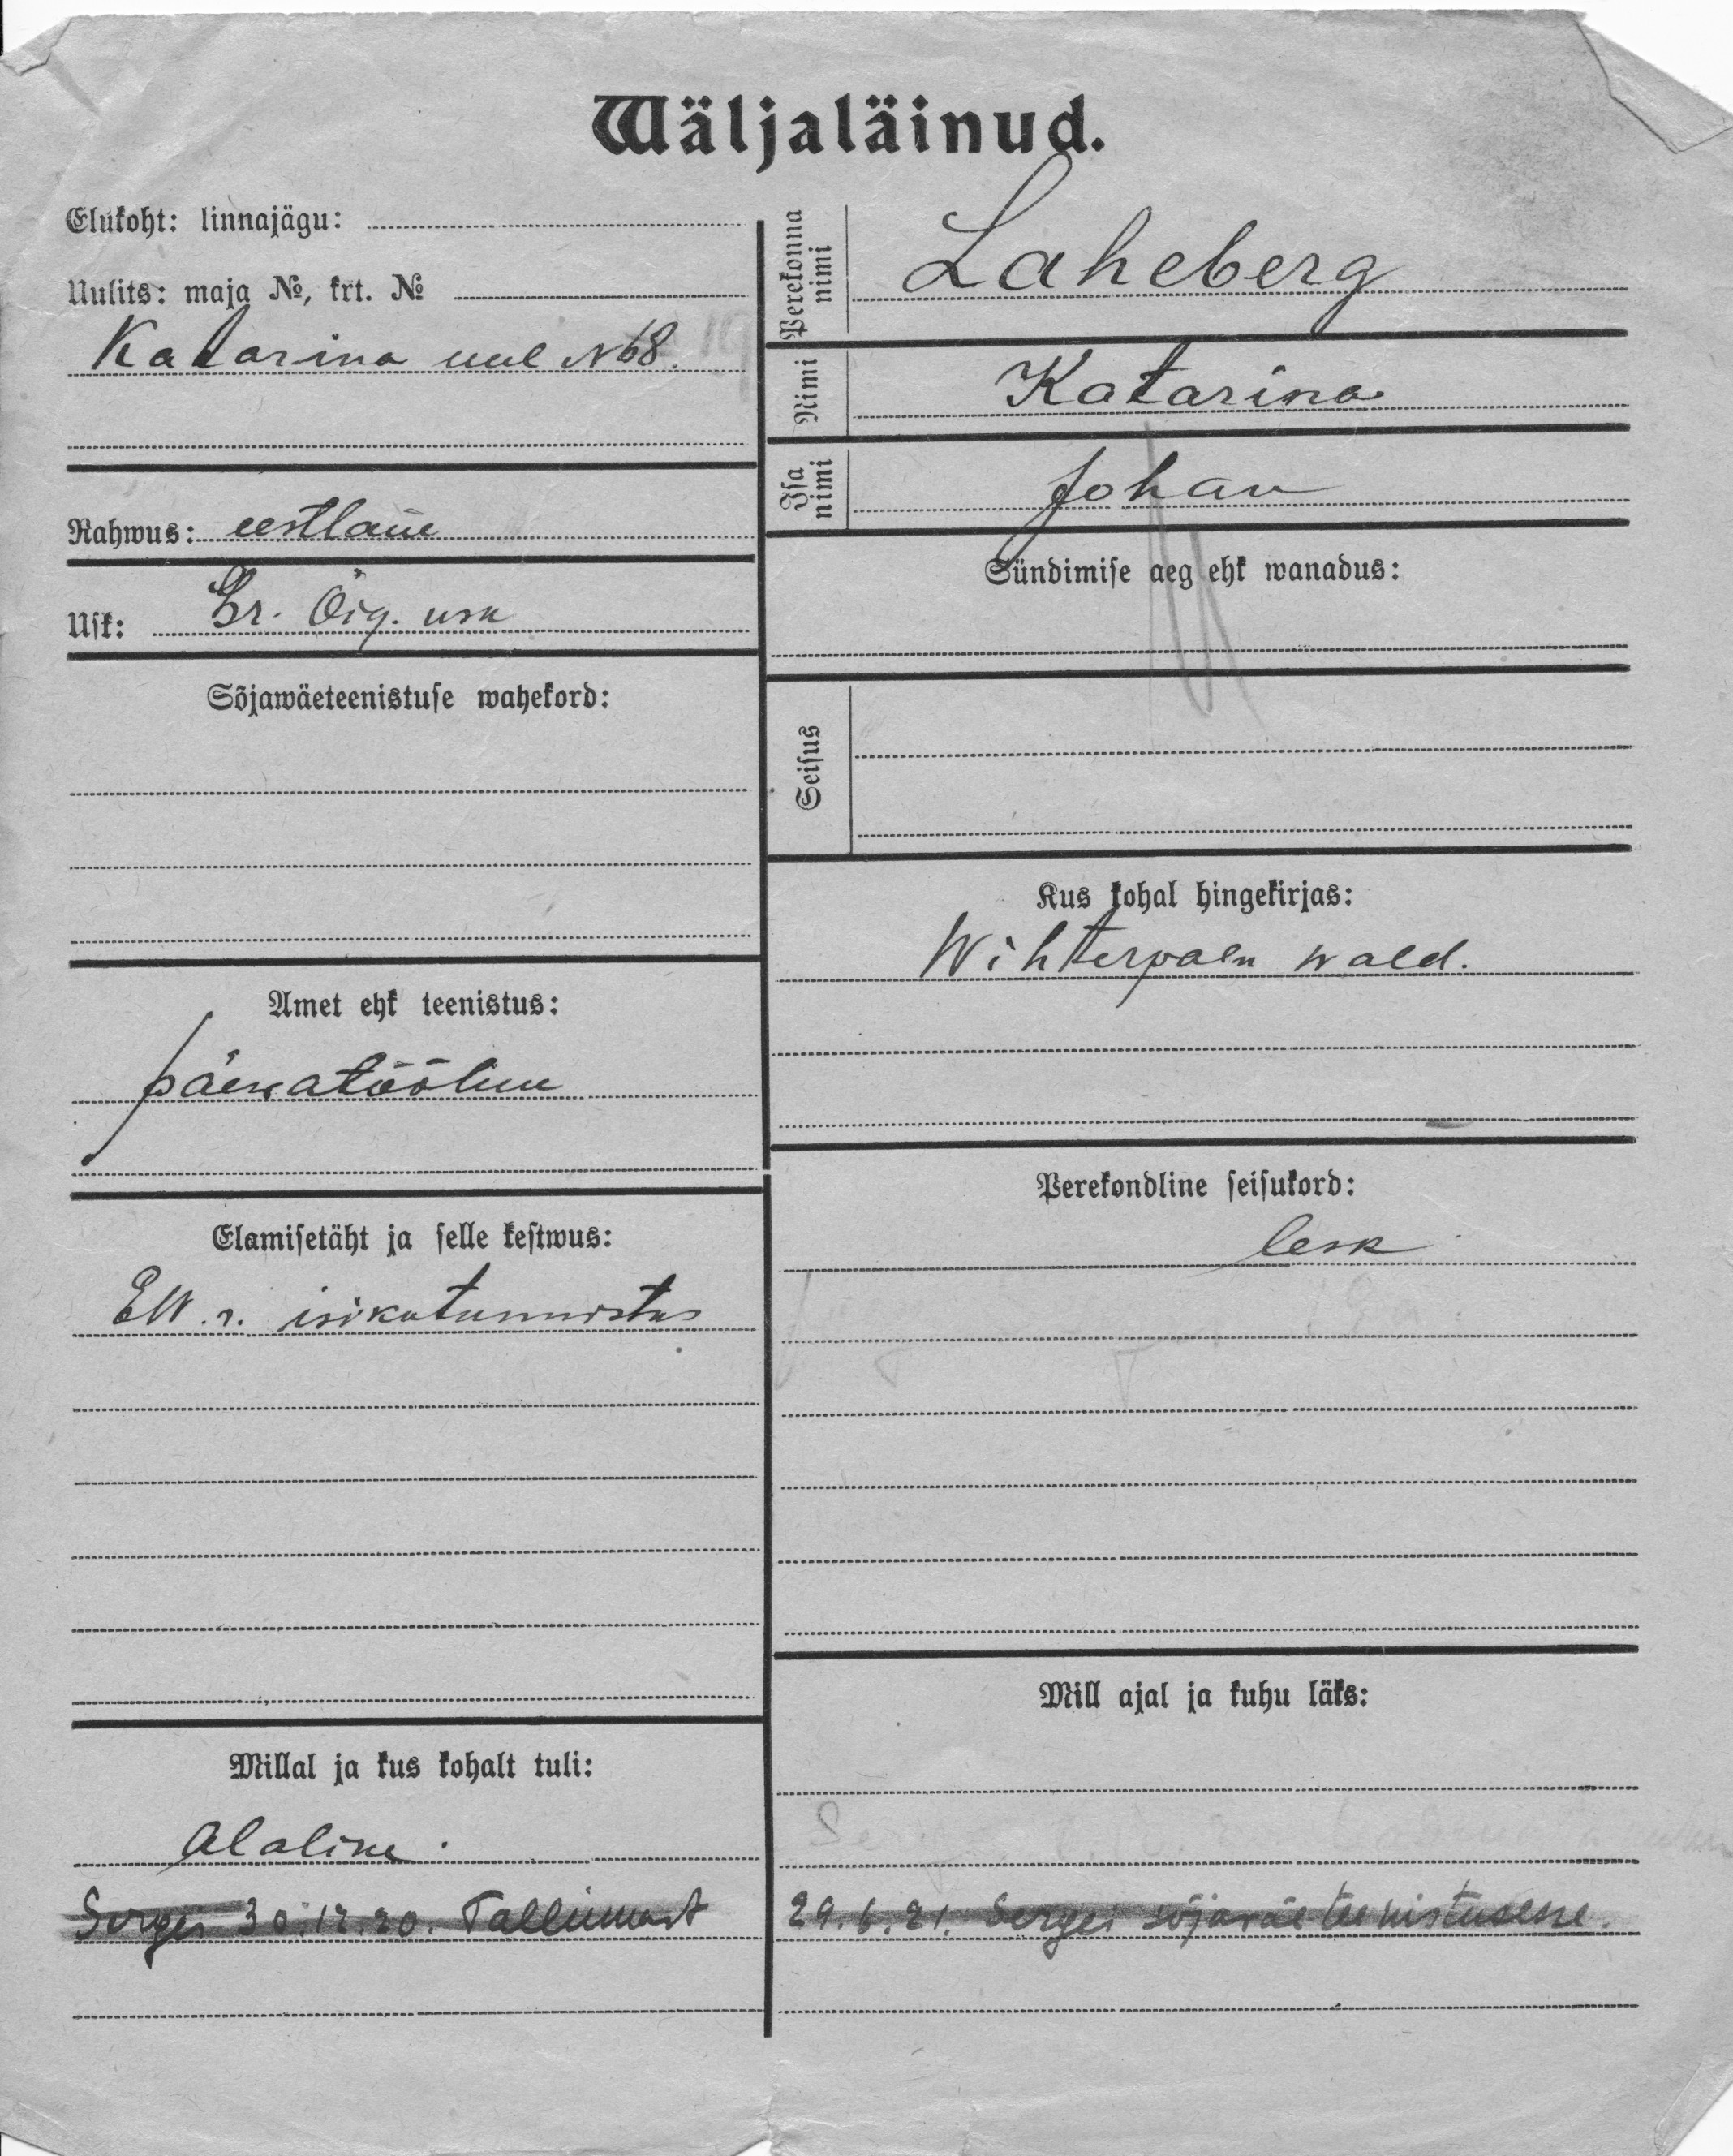 Wäljaläinud.
Elukoht: linnajägu:
Uulits: maja №, krt. №
Katarina uul N 68.
Rahwus: eestlane
Usk: Kr. Õig. usk
Sõjawäeteenistuse wahekord:
Amet ehk teenistus:
päewatööline
Elamisetäht ja selle kestwus:
EW. r. isikutunnistus
Millal ja kus kohalt tuli:
Alaline.
Sergei 30.12.20. Tallinnast
Perekonna nimi Laheberg
Nimi Katarina
Isa nimi Johan
Sündimise aeg ehk wanadus:
Seisus
Kus kohal hingekirjas:
Wihterpalu wald.
Perekondline seisukord:
lesk
Mill ajal ja kuhu läks:
29.6.21. Sergei sõjawäeteenistusesse.